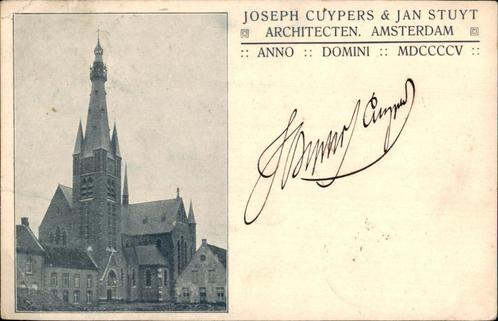 JOSEPH CUYPERS & JAN STUYT
ARCHITECTEN. AMSTERDAM
:: ANNO :: DOMINI :: MDCCCCV ::
Joseph Cuypers